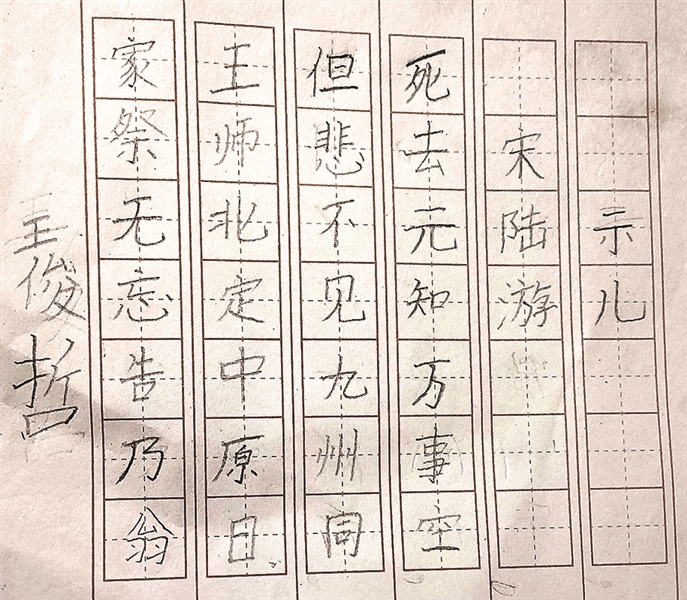 示儿
宋陆游
死去元知万事空
但悲不见九州同
王师北定中原日
家祭无忘告乃翁
王俊哲